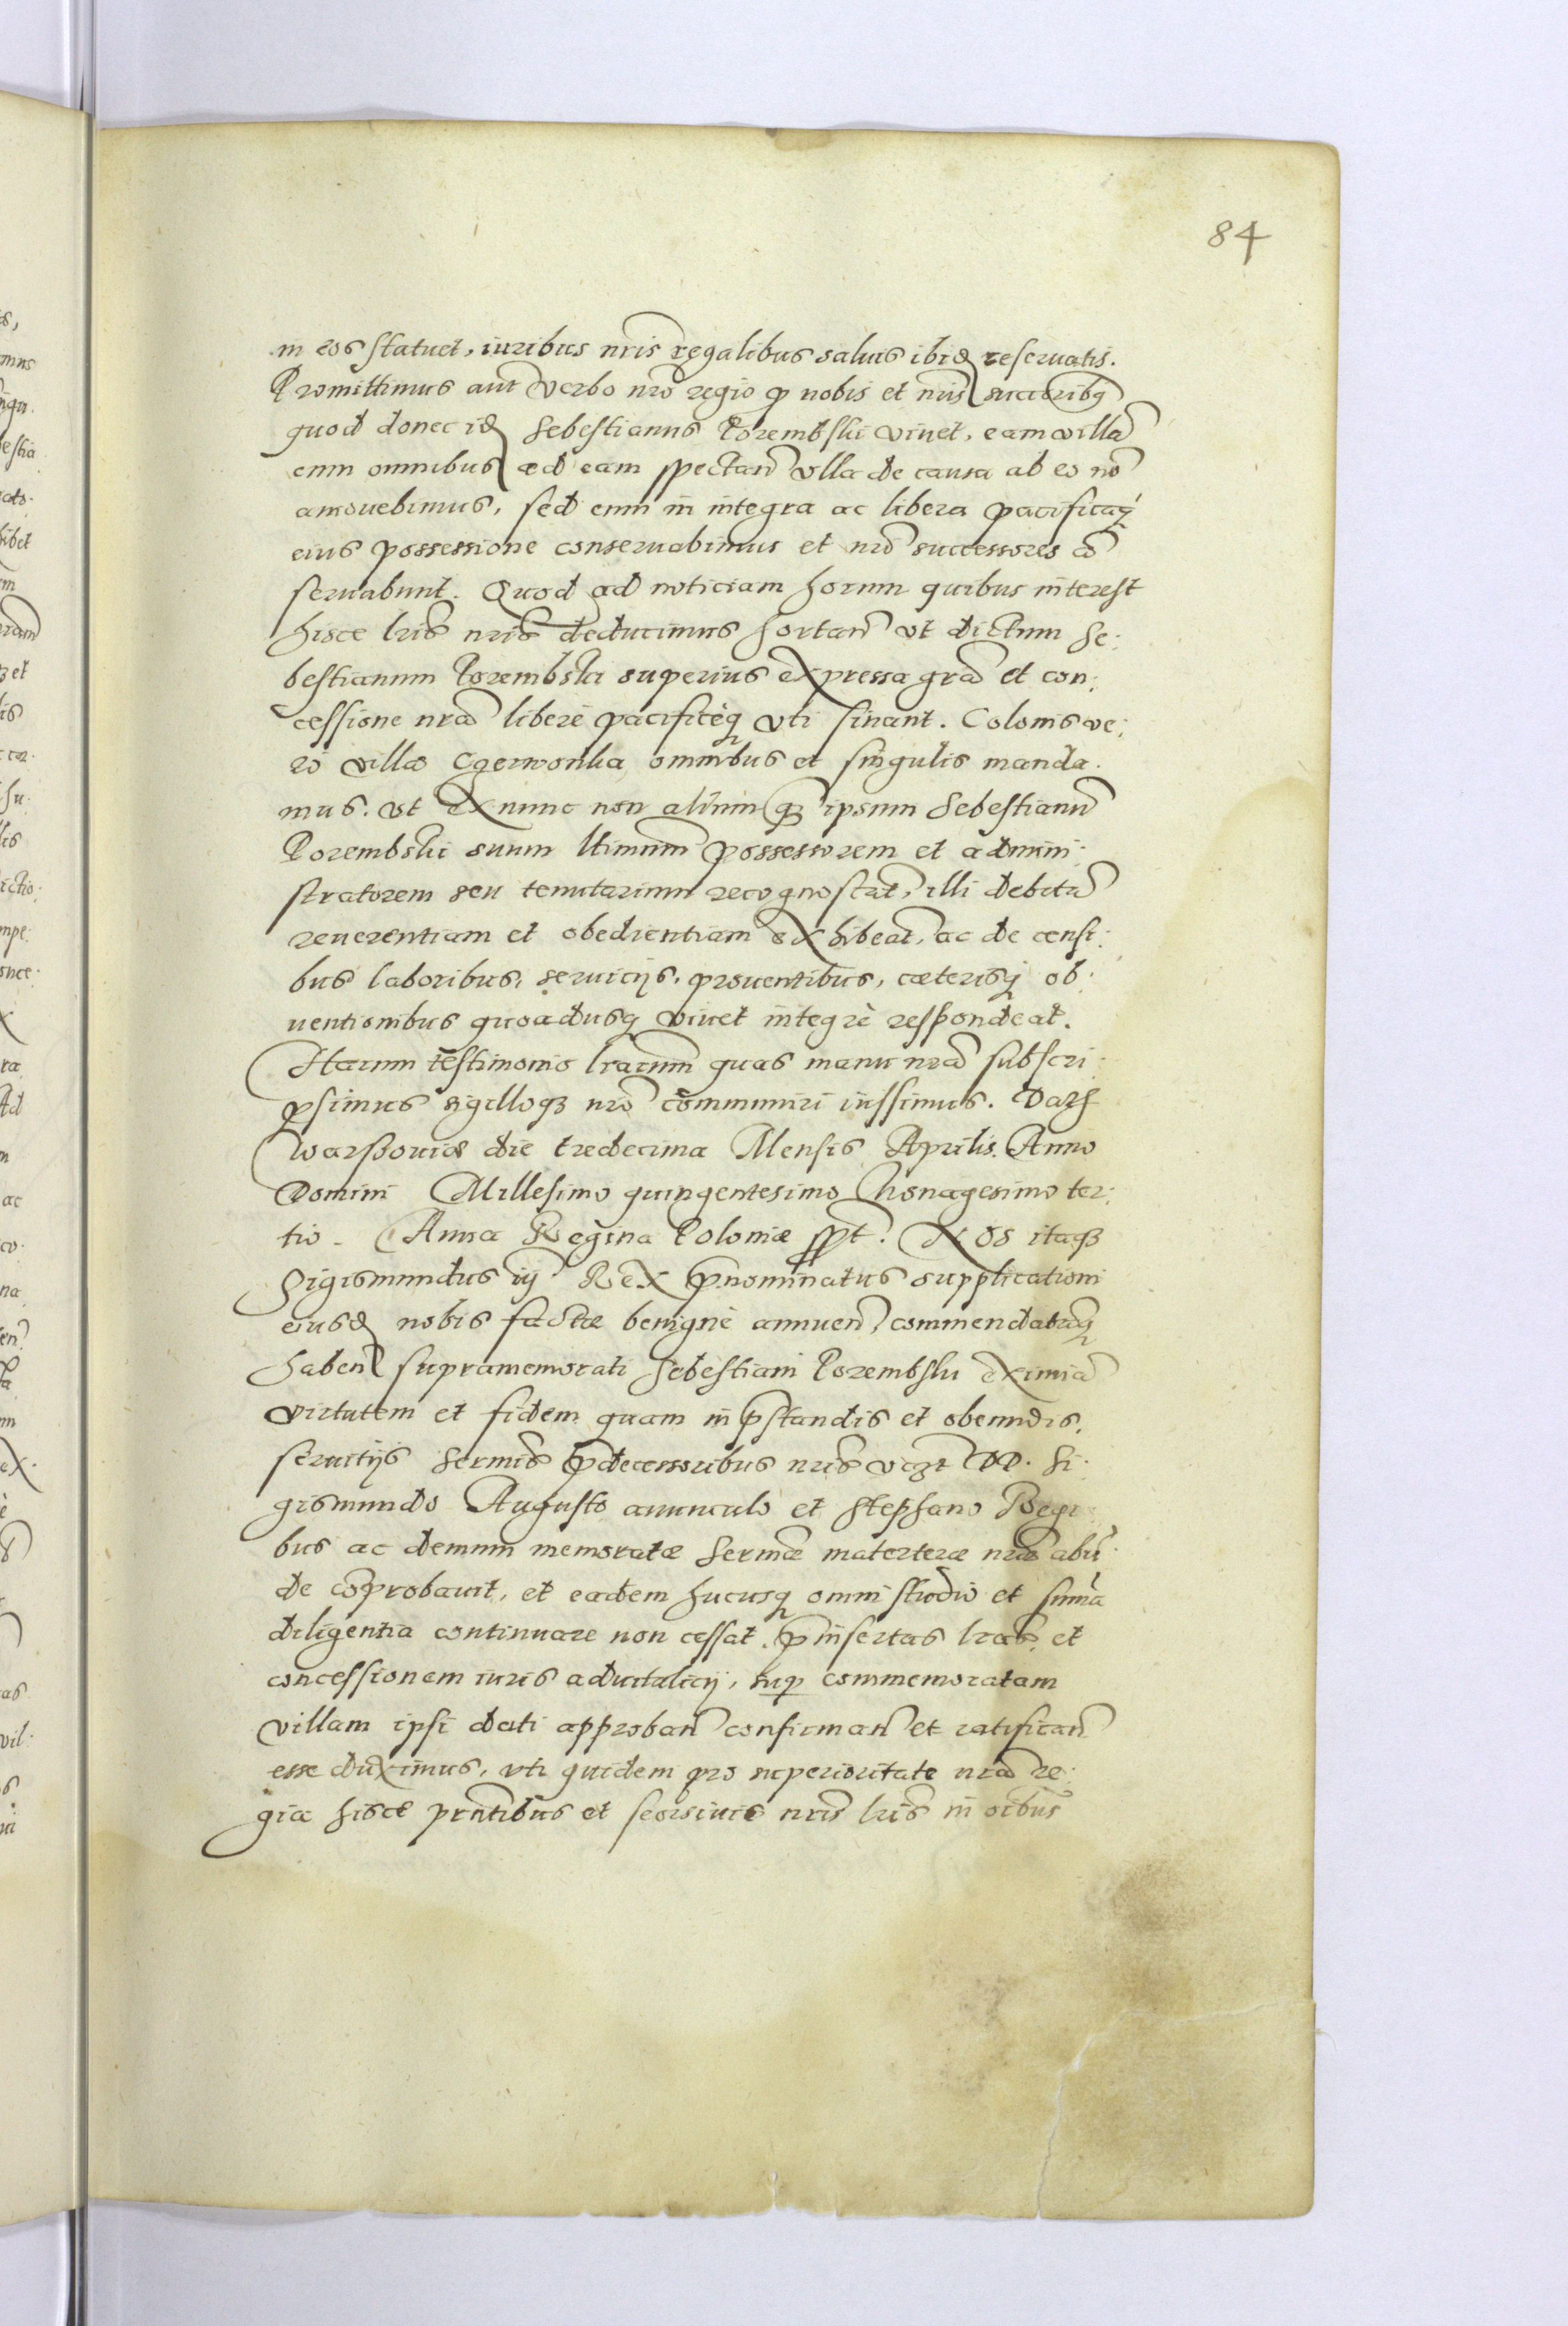 84
in eos statuet, iuribus nris regalibus saluis ibid reseruatis.
Promittimus aut verbo nro regio p nobis et nris succoribq
quod donec id Sebestianus Porembski viuet, eam villa
cum omnibus ad eam spectan vlla de causa ab eo no
amouebimus, sed cum in integra ac libera pacificaq
eius possessione conseruabimus et nri successores co
seruabunt. Quod ad noticiam horum quibus interest
hisce lris nris deducimus hortan vt dictum Se:
bestianum Porembski superius expressa gra et con:
cessione nra liberè pacificèq vti sinant. Colonis ve:
ro villæ Czerwonka omnibus et singulis manda:
mus. vt ex nunc non alium q ipsum Sebestianu
Porembski suum ltimum possessorem et admini:
stratorem seu tenutarium recognoscat, illi debita
reuerentiam et obedientiam exhibeat, ac de censi:
bus laboribus, seruicijs, prouentibus, cæterisq ob:
uentionibus quoadusq viuet integrè respondeat.
Harum testimonio lrarum quas manu nra subscri:
psimus sigilloq nro communiri iussimus. Dat
Warssouiæ die tredecima Mensis Aprilis. Anno
Domini Millesimo quingentesimo Nonagesimo ter:
tio. Anna Regina Poloniæ sspt. Nos itaq
Sigismundus iij Rex pnominatus supplicationi
eiusd nobis factæ benignè annuen, commendatāq
haben supramemorati Sebestiani Porembski eximia
virtutem et fidem quam in pstandis et obeundis
seruitijs Sermis pdecessoribus nris vczt DD. Si:
gismundo Augusto auunculo et Stephano Regi
bus ac demum memoratæ Sermæ materteræ nræ abū:
de coprobauit, et eadem hucusq omni studio et suma
diligentia continuare non cessat. pinsertas lras et
concessionem iuris aduitalicij, sup commemoratam
villam ipsi dati approban confirman et ratifican
esse duximus, vti quidem pro superioritate nra re:
gia hisce pntibus et seorsiuis nris lris in oibus